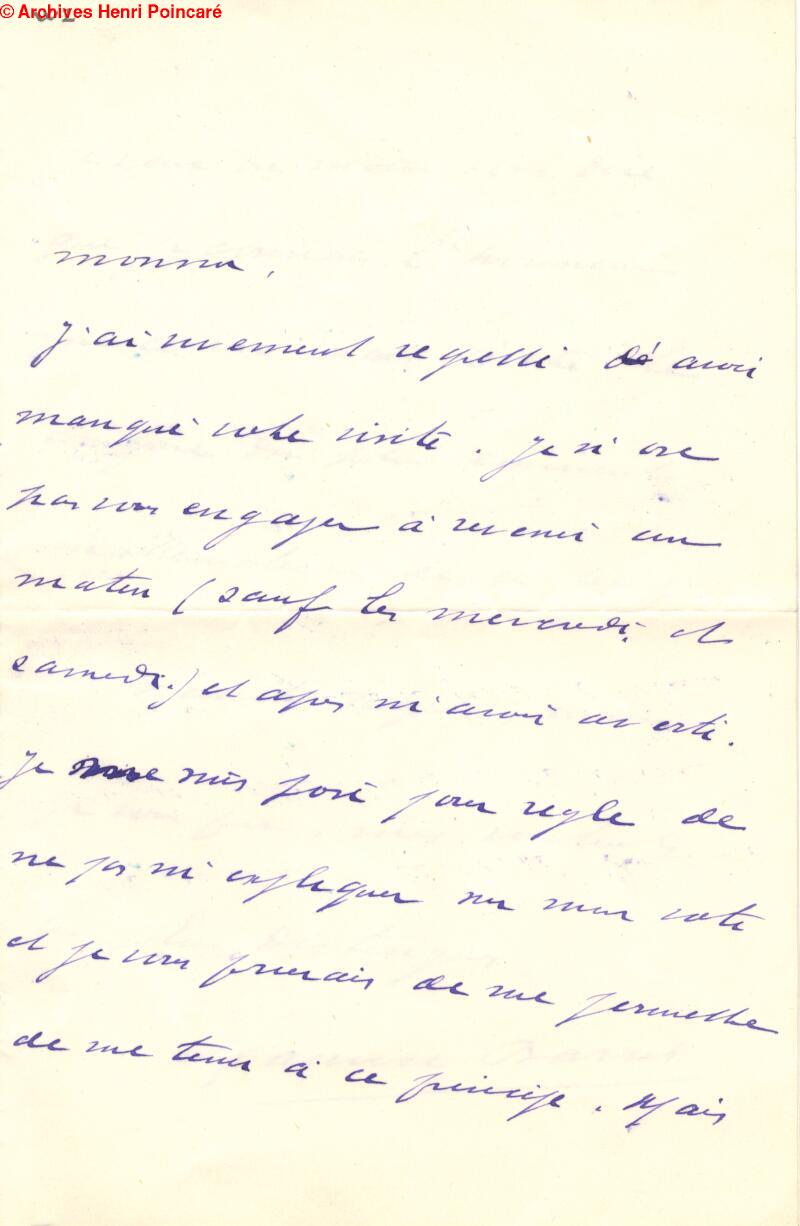 © Archives Henri Poincaré
Monsieur,
J'ai vivement regretté d'avoir
manqué votre visite. Je n'ose
pas vous engager à revenir un
matin (sauf les mercredi et
samedi.) et après m'avoir averti.
Je me suis posé pour règle de
ne pas m'expliquer sur mon vote
et je vous prierais de me permettre
de me tenir à ce principe. Mais